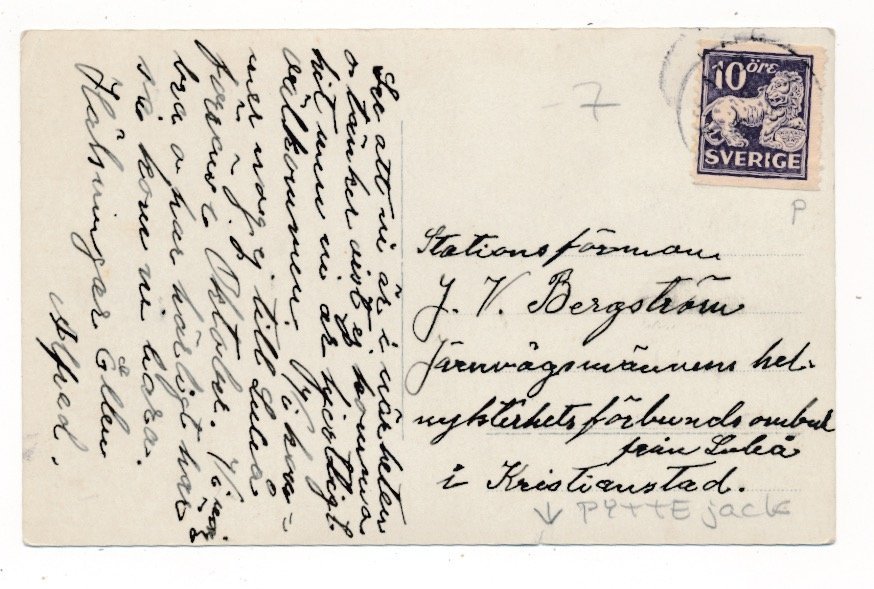 Ser att ni är i närheten
o tänker visst ej komma
hit men ni är hjärtligt
välkommen. Vi kom-
mer nog ej till Luleå
förens i Oktober. Vi mår
bra o har härligt här
så kom ni bara.
Hälsningar Ellen
å
Alfred.
-7
10 öre
SVERIGE
P
Stationsförman
J. V. Bergström
Järnvägsmännens hel-
nykterhetsförbunds ombud
från Luleå
i Kristianstad.
↓ PYTTE jack